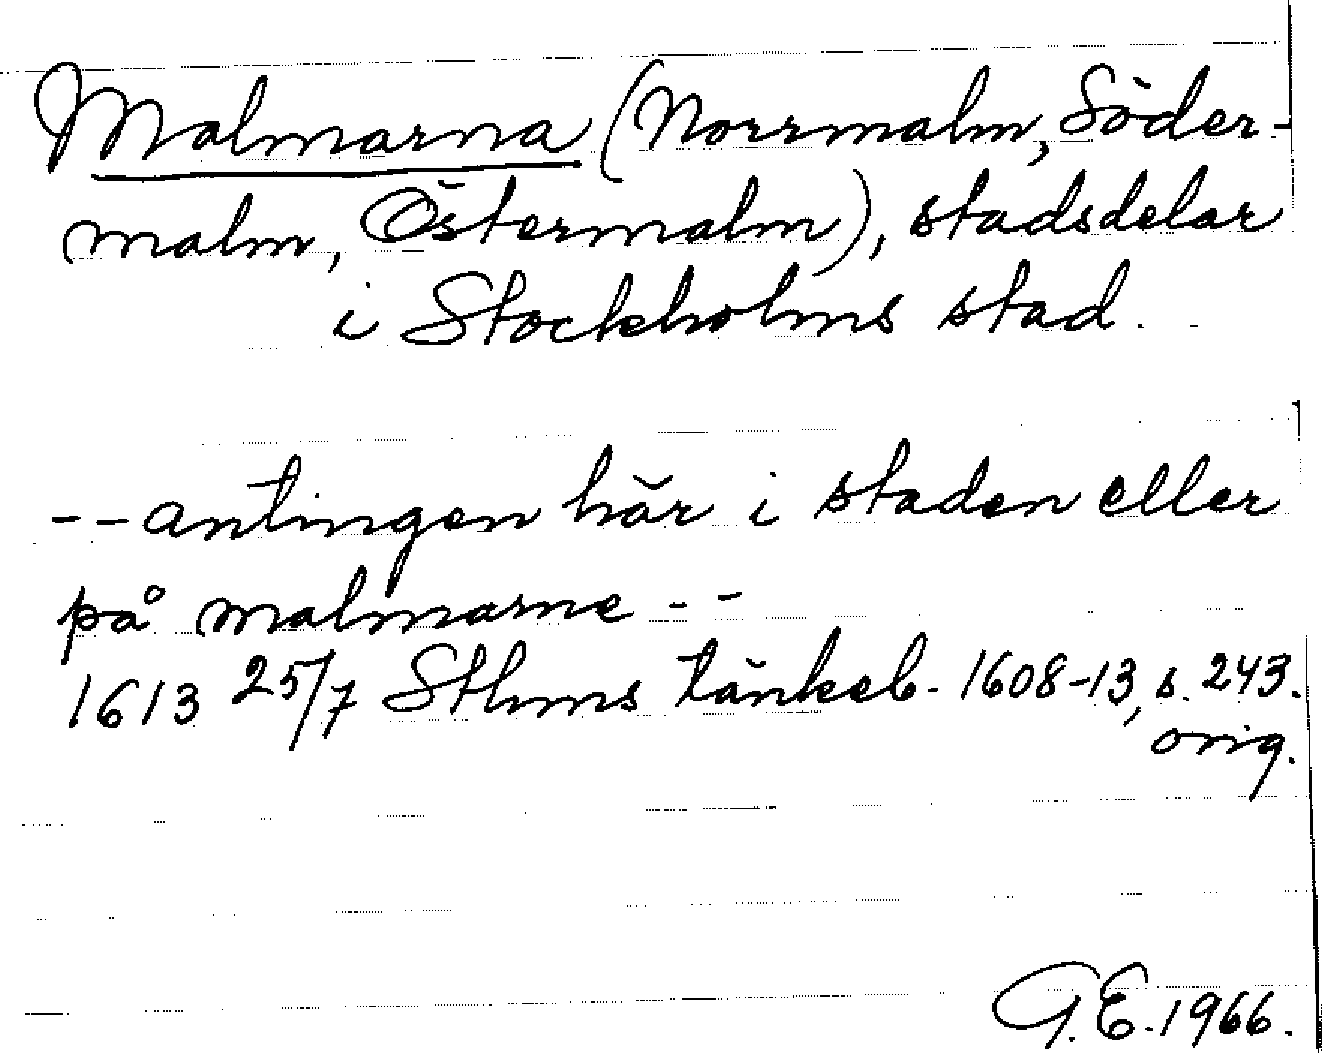 Malmarna (Norrmalm, Söder-
malm, Östermalm), stadsdelar
i Stockholms stad.
-- antingen här i staden eller
på malmarne --
1613 25/7 Sthms tänkeb. 1608-13, s. 243.
orig.
G.E. 1966.